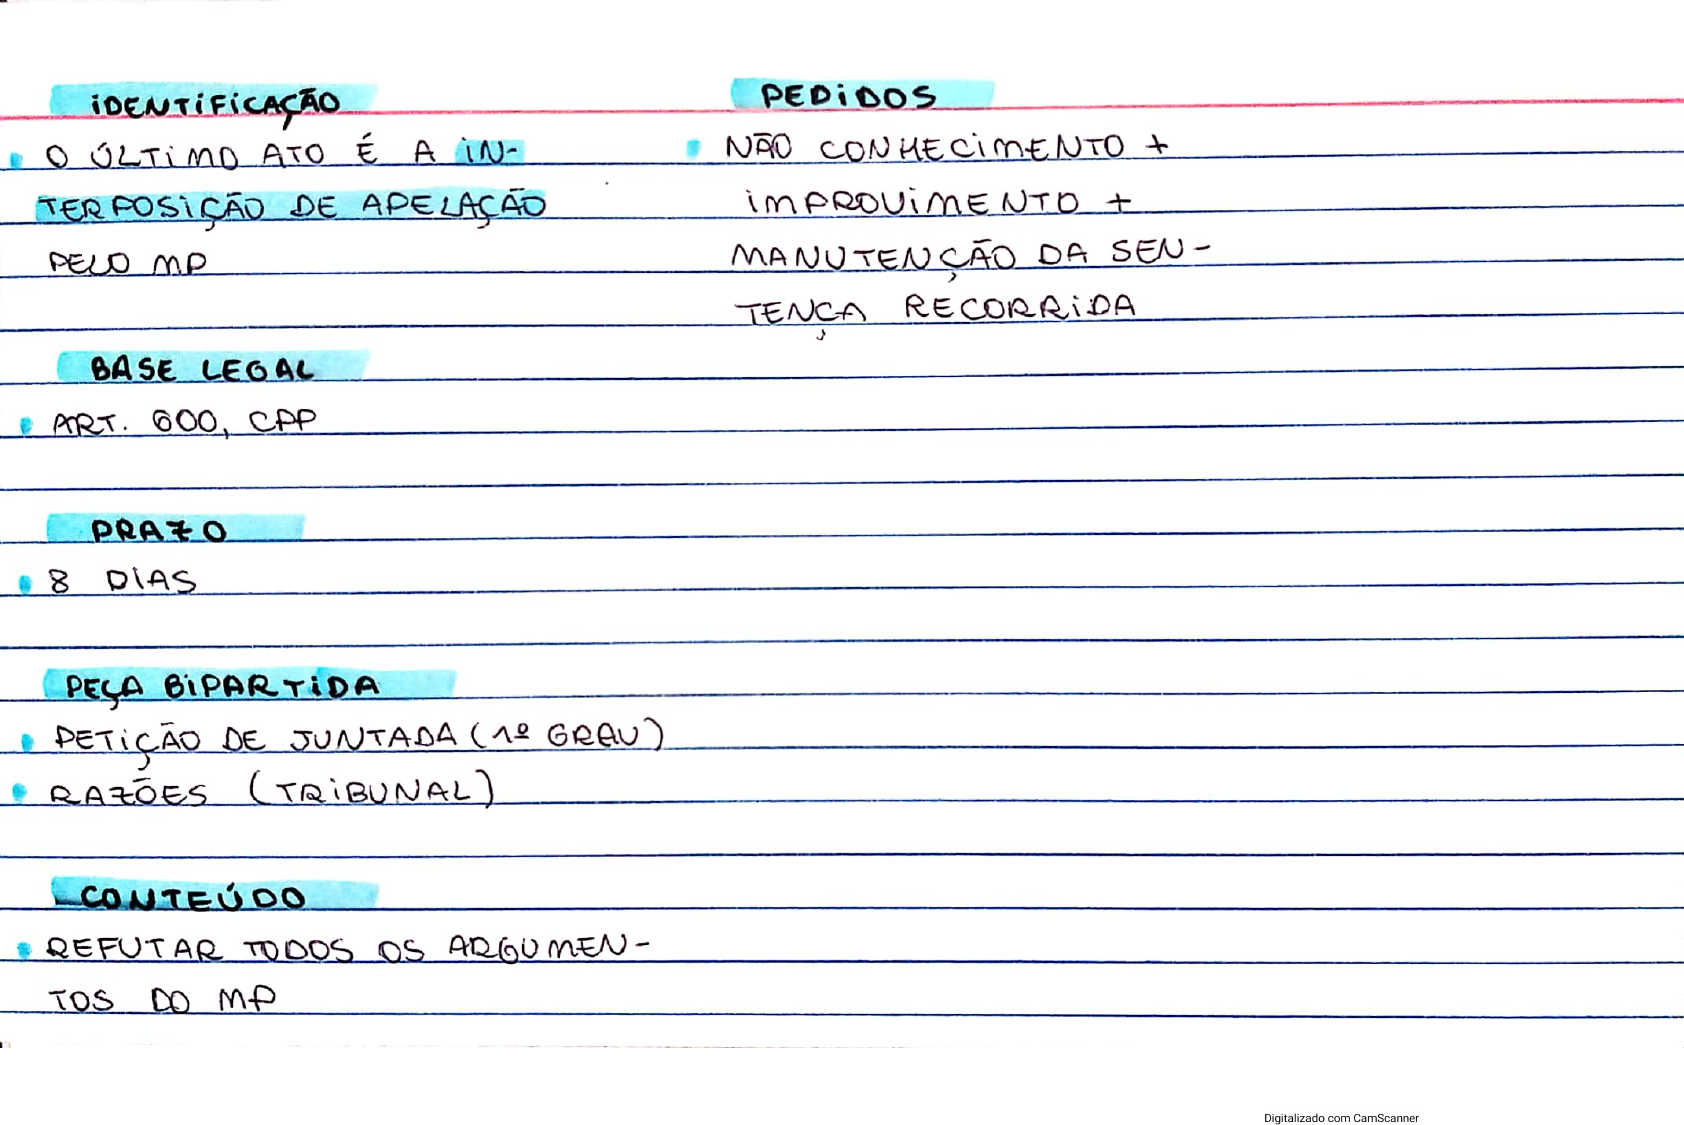 IDENTIFICAÇÃO
O ÚLTIMO ATO É A IN-
TERPOSIÇÃO DE APELAÇÃO
PELO MP
BASE LEGAL
ART. 600, CPP
PRAZO
8 DIAS
PEÇA BIPARTIDA
PETIÇÃO DE JUNTADA (1º GRAU)
RAZÕES (TRIBUNAL)
CONTEÚDO
REFUTAR TODOS OS ARGUMEN-
TOS DO MP
PEDIDOS
NÃO CONHECIMENTO +
IMPROVIMENTO +
MANUTENÇÃO DA SEN-
TENÇA RECORRIDA
Digitalizado com CamScanner